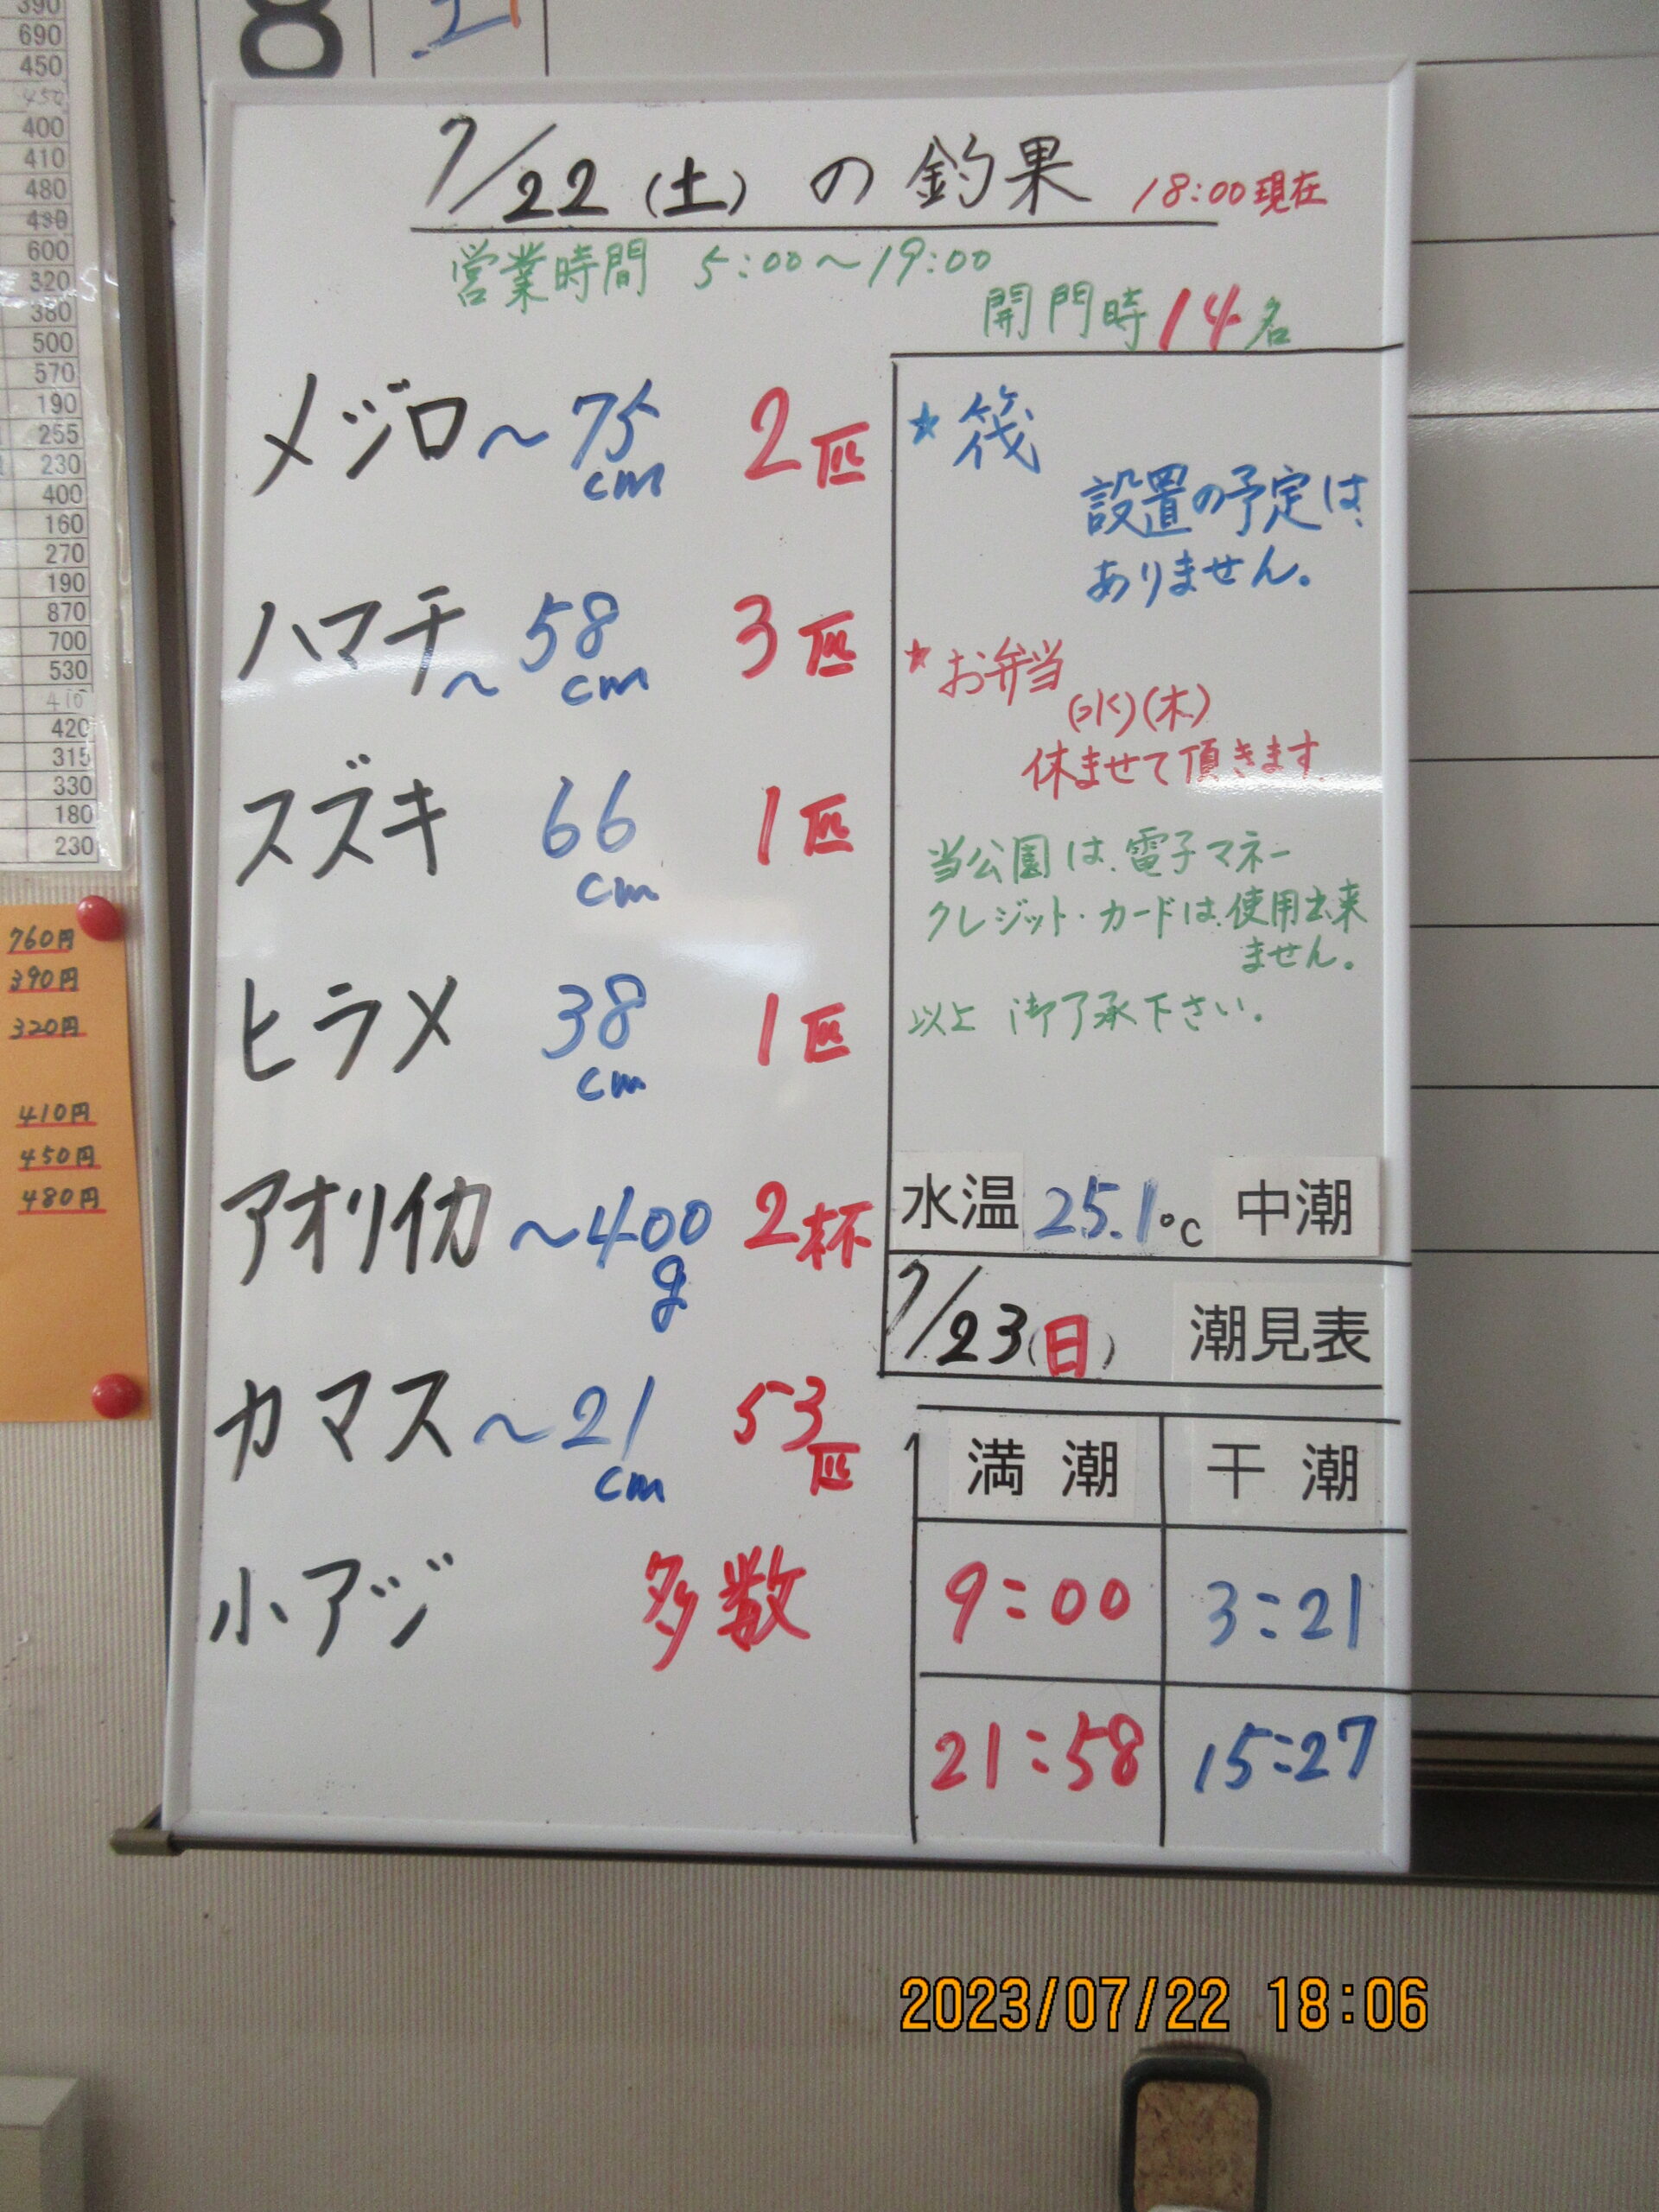 390
690
450
450
400
410
480
430
600
320
380
500
570
190
255
230
400
160
270
190
870
700
530
410
420
315
330
180
230
760円
390円
320円
410円
450円
480円
8
7/22(土)の釣果 18:00現在
営業時間 5:00～19:00
開門時14名
メジロ～75cm 2匹
ハマチ～58cm 3匹
スズキ 66cm 1匹
ヒラメ 38cm 1匹
アオリイカ～400g 2杯
カマス～21cm 53匹
小アジ 多数
★筏
設置の予定は、
ありません。
★お弁当
(水)(木)
休ませて頂きます。
当公園は、電子マネー
クレジット・カードは、使用出来
ません。
以上 御了承下さい。
水温 25.1℃ 中潮
7/23(日) 潮見表
満潮 干潮
9:00 3:21
21:58 15:27
2023/07/22 18:06